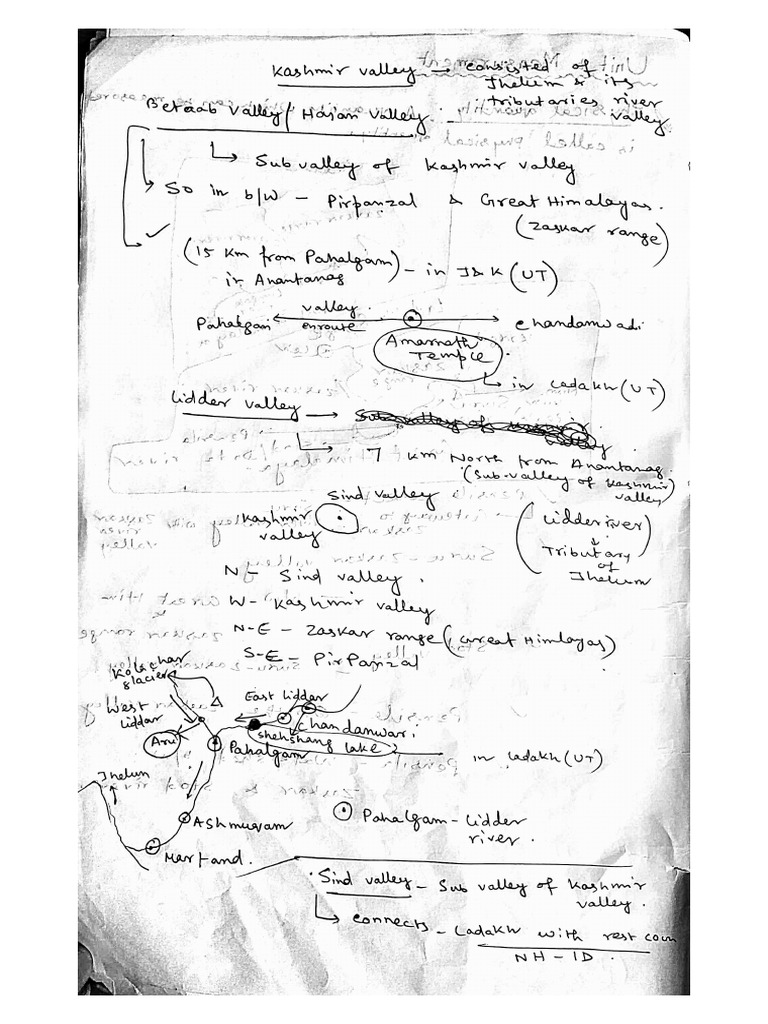 Kashmir valley – consisted of
Jhelum & its
tributaries river
valley
Betaab valley / Hajan valley.
↳ Sub valley of Kashmir valley
So in b/w – Pirpanzal & Great Himalayas.
(Zaskar range)
(15 Km from Pahalgam) – in J&K (UT)
in Anantanag
valley.
Pahalgam enroute Chandanwadi
Amarnath
Temple.
↳ in Ladakh (UT)
Lidder valley →
↳ 7 km North from Anantanag.
(Sub-valley of Kashmir)
valley)
Sind valley
Kashmir
valley
(Lidder river)
↓
Tributary
of
Jhelum
N – Sind valley.
W – Kashmir valley
N-E – Zaskar range (Great Himlayas)
S-E – Pir Panzal
glacier
East Liddar
West
liddar
Chandanwari
Aru
Shehshang lake
in Ladakh (UT)
Pahalgam
Jhelum
Ashmugam
Pahalgam – Lidder
river.
Martand.
Sind valley – Sub valley of Kashmir
valley.
↳ connects – Ladakh with rest coun
NH – 1D.